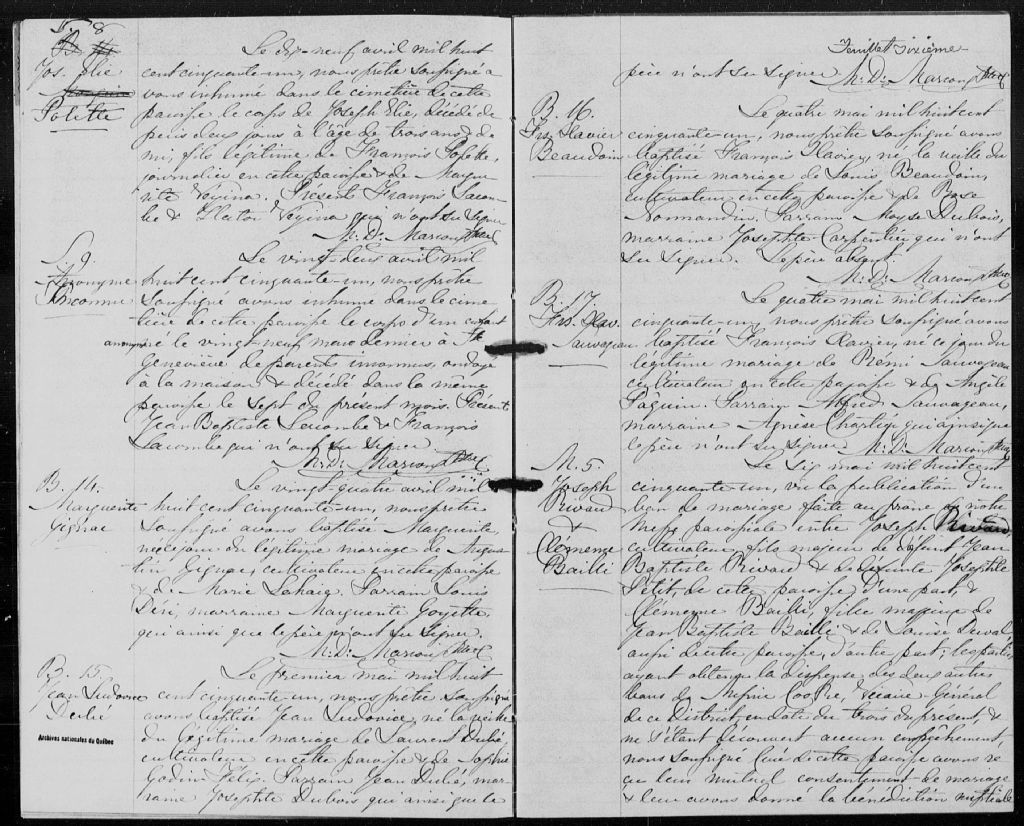 S. 8
Jos. Elie
Polette
Le dix-neuf avril mil huit
cent cinquante-un, nous prêtre soussigné a
vons inhumé dans le cimetière de cette
paroisse le corps de Joseph Elie, décédé de
puis deux jours à l'âge de trois ans & de
mi, fils légitime de François Polette,
journalier en cette paroisse & de Margue
rite Vézina. Présents François Lacom
be & Vézina qui n'ont su signer
M. D. Marcoux Ptre
S. 9.
Anonyme
Inconnu
Le vingt-deux avril mil
huit cent cinquante-un, nous prêtre
soussigné avons inhumé dans le cime
tière de cette paroisse le corps d'un enfant
anonyme né le vingt-neuf mars dernier à Ste
Geneviève de parents inconnus, ondoyé
à la maison & décédé dans la même
paroisse le sept du présent mois. Présents
Jean Baptiste Lacombe & François
Lacombe qui n'ont su signer
M. D. Marcoux Ptre
B. 14.
Marguerite
Gignac
Le vingt-quatre avril mil
huit cent cinquante-un, nous prêtre
soussigné avons baptisé Marguerite,
née ce jour du légitime mariage de Augus
tin Gignac, cultivateur en cette paroisse
& de Marie Parrain Louis
marraine Marguerite Goyette,
qui ainsi que le père n'ont su signer.
M. D. Marcoux Ptre
B. 15.
Jean Ludovice
Dubé
Le premier mai mil huit
cent cinquante-un, nous prêtre soussigné
avons baptisé Jean Ludovice, né la veille
du légitime mariage de Laurent Dubé,
cultivateur en cette paroisse & de Sophie
Godin Parrain Jean Dubé, mar
raine Josephte Dubois qui ainsi que le
Archives nationales du Québec
Feuillet sixième
père n'ont su signer M. D. Marcoux Ptre
B. 16.
Frs. Xavier
Beaudoin
Le quatre mai mil huit cent
cinquante-un, nous prêtre soussigné avons
baptisé François Xavier, né la veille du
légitime mariage de Louis Beaudoin,
cultivateur en cette paroisse & de Rose
Normandin. Parrain Moyse Dubois,
marraine Josephte Carpentier qui n'ont
su signer. Le père absent.
M. D. Marcoux Ptre
B. 17.
Frs. Xav.
Sauvageau
Le quatre mai mil huit cent
cinquante-un, nous prêtre soussigné avons
baptisé François Xavier, né ce jour du
légitime mariage de Rémi Sauvageau
cultivateur en cette paroisse & de Angèle
Paquin. Parrain Alfred Sauvageau,
marraine Agnèse qui ainsi que
le père n'ont su signer. M. D. Marcoux Ptre
M. 5.
Joseph
Rivard
&
Clémence
Bailli
Le six mai mil huit cent
cinquante-un, vu la publication d'un
ban de mariage faite au prône de notre
Messe paroissiale entre Joseph Rivard,
cultivateur, fils majeur de défunt Jean
Baptiste Rivard & de défunte Josephte
Petit, de cette paroisse, d'une part, &
Clémence Bailli, fille majeure de
Jean Baptiste Bailli & de Louise Duval
aussi de cette paroisse, d'autre part; les parties
ayant obtenu la dispense des deux autres
bans de Messire Cooke, Vicaire Général
de ce District en date du trois du présent, &
ne s'étant découvert aucun empêchement,
nous soussigné Curé de cette paroisse avons re
çu leur mutuel consentement de mariage
& leur avons donné la bénédiction nuptiale